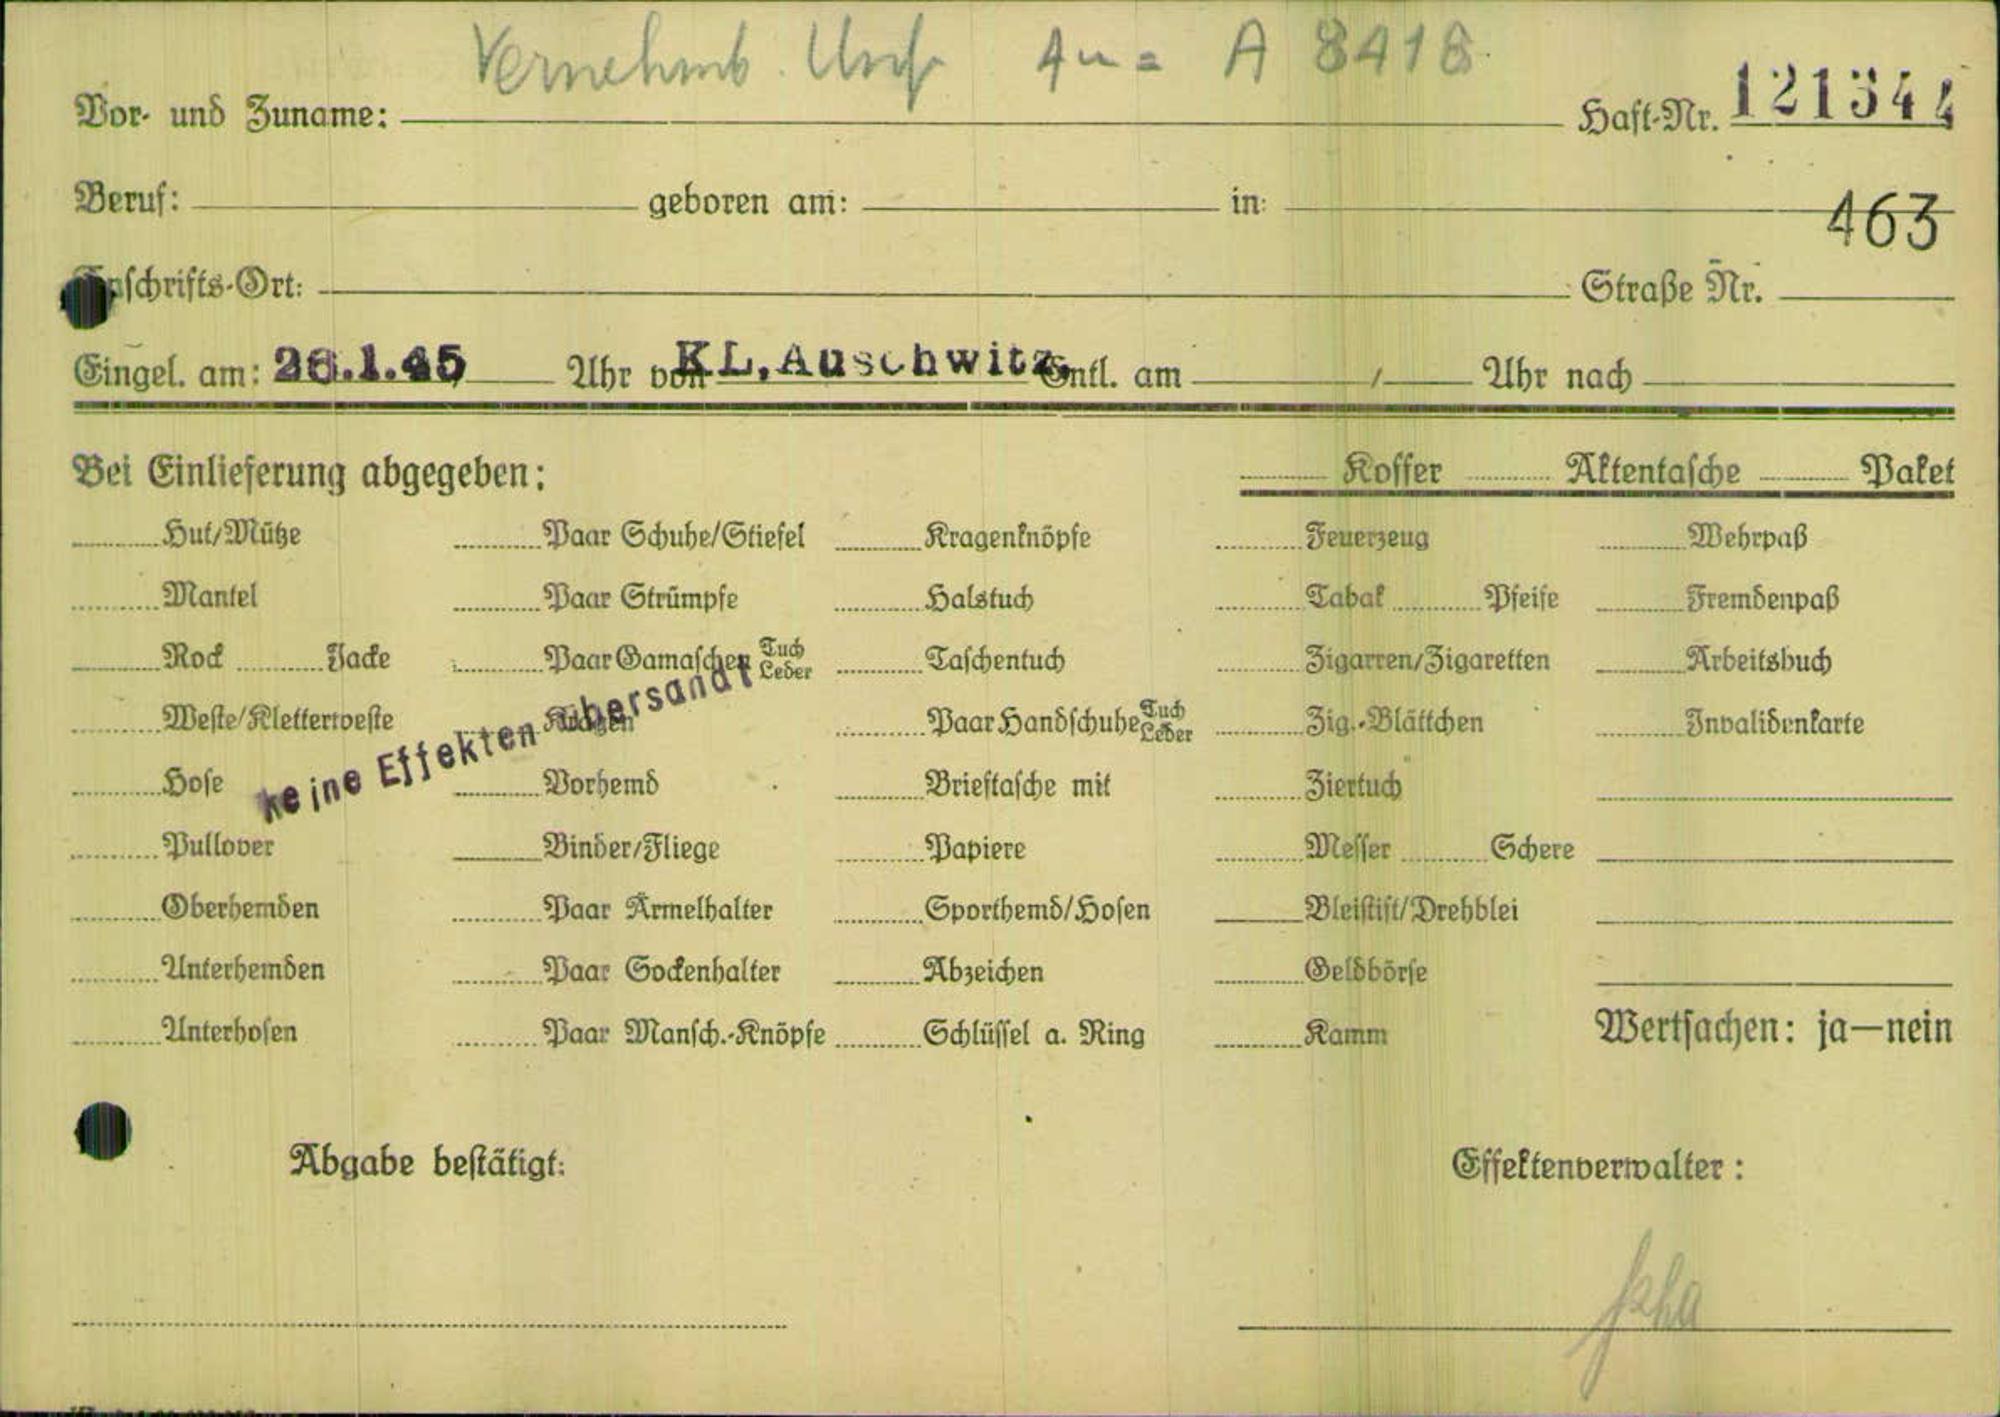 A 8418
Vor- und Zuname: Haft-Nr. 121344
Beruf: geboren am: in: 463
Anschrifts-Ort: Straße Nr.
Eingel. am: 26.1.45 Uhr von KL. Auschwitz Entl. am / Uhr nach
Bei Einlieferung abgegeben: Koffer Aktentasche Paket
Hut/Mütze Paar Schuhe/Stiefel Kragenknöpfe Feuerzeug Wehrpaß
Mantel Paar Strümpfe Halstuch Tabak Pfeife Fremdenpaß
Rock Jacke Paar Gamaschen Tuch Leder Taschentuch Zigarren/Zigaretten Arbeitsbuch
Weste/Kletterweste Kragen Paar Handschuhe Tuch Leder Zig.-Blättchen Invalidenkarte
keine Effekten übersandt
Hose Vorhemd Brieftasche mit Ziertuch
Pullover Binder/Fliege Papiere Messer Schere
Oberhemden Paar Ärmelhalter Sporthemd/Hosen Bleistift/Drehblei
Unterhemden Paar Sockenhalter Abzeichen Geldbörse
Unterhosen Paar Mansch.-Knöpfe Schlüssel a. Ring Kamm Wertsachen: ja—nein
Abgabe bestätigt: Effektenverwalter: